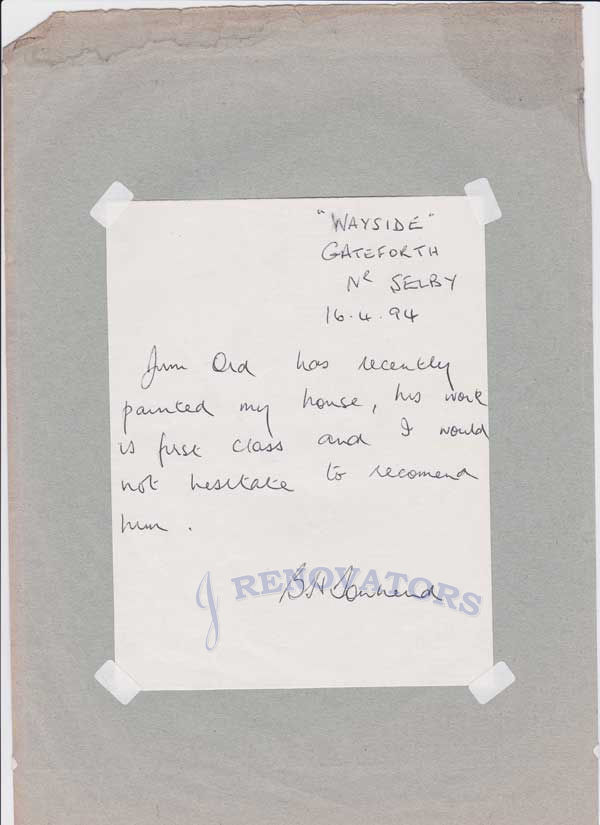 "WAYSIDE"
GATEFORTH
Nr SELBY
16.4.94
Jim Ord has recently
painted my house, his work
is first class and I would
not hesitate to recomend
him.
J RENOVATORS
B H Townend